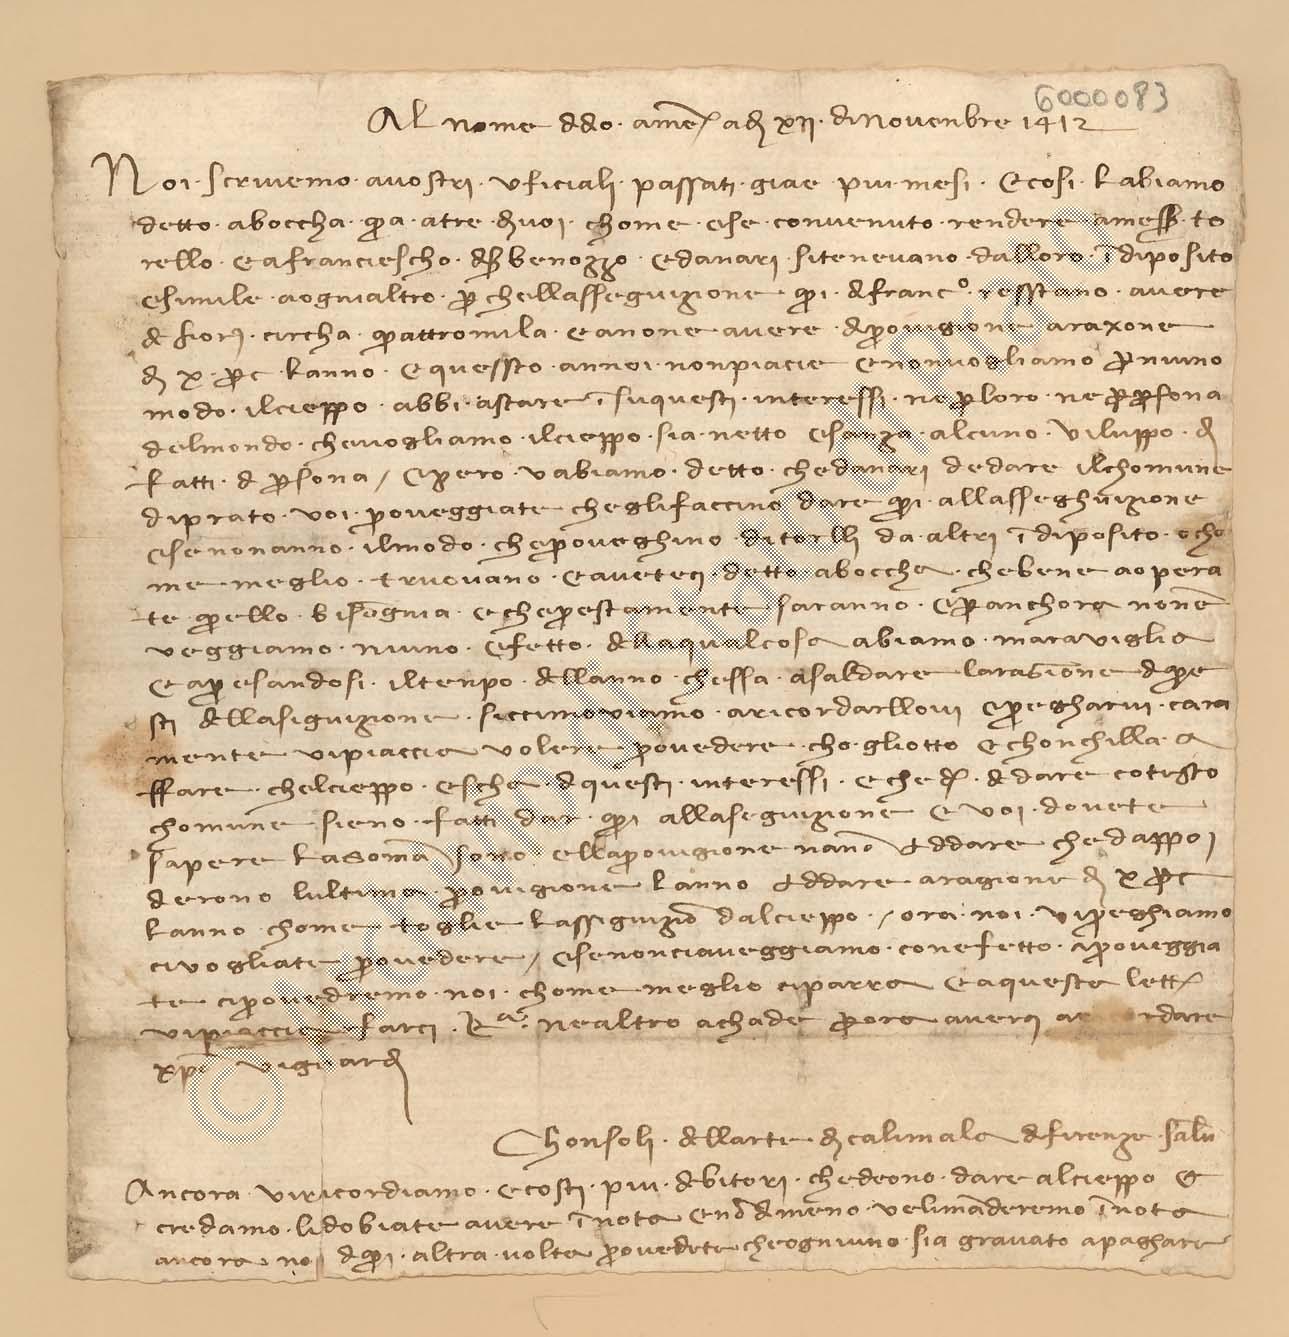 6000083
Al nome ddo. amē adi xii. di Novenbre 1412
Noi. scrivemo. avostri. uficiali. passati. giae piu mesi. ecosi. kabiamo
detto. aboccha. p̄a. atre divoi. chome. esse. convenuto. rendere amess. to
rello. eafranciescho. di s benozzo. edanari. sitenevano. dalloro. ī diposito
esimile. aognialtro. p̄ chellassegvizione. q̄i. di franc°. resstano. avere
di fiori. circha. q̄attromila. eanone avere. di p̄ovigione araxone
di x. p̄ c̄ lanno. equessto. annoi. nonpiacie enonvogliamo p̄ niuno
modo. ilcieppo. abbi. astare ī suquesti. interessi. ne p̄ loro. ne p̄ p̄sona
delmondo. chevogliamo. ilcieppo. sia. netto esanza. alcuno. viluppo. di
fatti. di p̄sona / epero. vabiamo. detto. chedanari dedare ilchomune
diprato. voi. p̄oveggiate cheglifaccino dare q̄i. allasseghuizione
esenonanno. ilmodo. chep̄oveghino. ditorlli da. altri ī diposito. ocho
me. meglio. truovano. eaveteci. detto. aboccha. chebene aopera
te. q̄ello. bisōgnia. echep̄estamente saranno. ep̄anchora nonē
veggiamo. niuno. efetto. dellaqualcosa abiamo. maraviglia
eap̄esandosi. iltenpo. dellanno. chessa. asaldare laragione di q̄e
sti dellasiguizione. siccimoviamo. aricordarllovi ep̄egharvi. cara
mente vipiaccia volere p̄ovedere. cho. gliotto echonchilla. a
ffare. chelcieppo. escha. di questi. interessi. eched. didare cotesto
chomune sieno. fatti dar. q̄i allasegvizione e voi. dovete
sapere kasomā sono ellap̄ovigione nano addare chedappoi
derono lultima. p̄ovigione kanno addare aragione di x p̄ c̄
lanno. chome. toglie. lassiguizio dalcieppo. / ora. noi. vip̄eghiamo
civogliate p̄ovedere / esenonciaveggiamo. conefetto. ip̄oveggia
te cip̄ovedremo. noi. chome meglio ciparra eaquesta lett
vipiaccia farci. R. nealtro achade p̄ora averci a rdare
xp̄o viguardi
Chonsoli. dellarte di calimala di firenze. salu
Ancora. viricordiamo. ecosti. piu. debitori. chedeono. dare alcieppo e
credamo. lidobiate avere īnota enōdimeno. velimāderemo īnota
ancora. noi di q̄i. altra. volta p̄ovedete cheogniuno. sia gravato apaghare